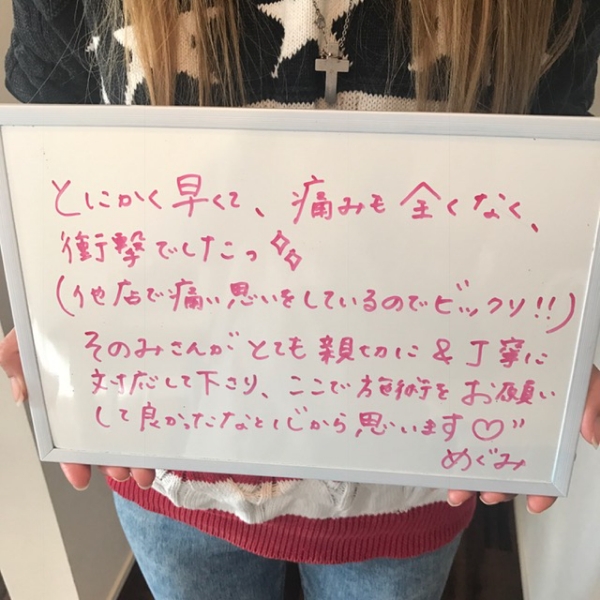 とにかく早くて、痛みも全くなく、
衝撃でしたっ
(他店で痛い思いをしているのでビックリ!!)
そのみさんがとても親切に&丁寧に
対応して下さり、ここで施術をお願い
して良かったなと心から思います♡"
めぐみ